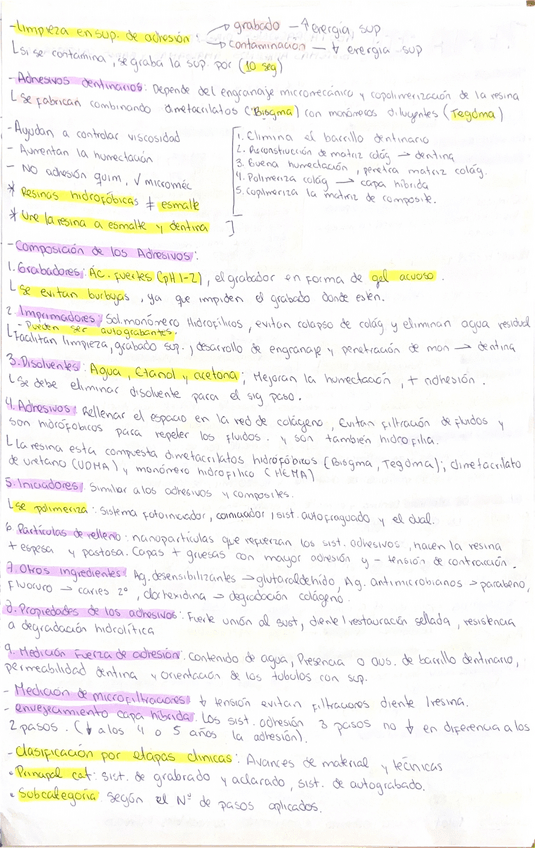 -Limpieza en sup. de adhesión: → grabado - ↑ energía sup
→ contaminación - ↓ energía sup
↳ Si se contamina, se graba la sup por (10 seg)
-Adhesivos dentinarios: Depende del engranaje micromecánico y copolimerización de la resina
↳ se fabrican combinando dimetacrilatos (Bisgma) con monómeros diluyentes (Tegdma)
- Ayudan a controlar viscosidad
- Aumentan la humectación
- NO adhesión quím, √ microméc
* Resinas hidrofóbicas ≠ esmalte
* Une la resina a esmalte y dentina
1. Elimina el barrillo dentinario
2. Reconstrucción de matriz colág → dentina
3. Buena humectación, penetra matriz colág.
4. Polimeriza colág → capa híbrida
5. Copolimeriza la matriz de composite.
-Composición de los Adhesivos:
1. Grabadores: Ác. fuertes (pH 1-2), el grabador en forma de gel acuoso.
↳ se evitan burbujas, ya que impiden el grabado donde estén.
2. Imprimadores: Sol. monómero Hidrofílicos, evitan colapso de colág y eliminan agua residual
- Pueden ser autograbantes.
↳ Facilitan limpieza, grabado sup., desarrollo de engranaje y penetración de mon → dentina
3. Disolventes: Agua, Etanol y acetona; Mejoran la humectación, + adhesión.
↳ Se debe eliminar disolvente para el sig paso.
4. Adhesivos: Rellenar el espacio en la red de colágeno, Evitan filtración de fluidos y
son hidrófobicos para repeler los fluidos. y son también hidrofilia.
↳ La resina esta compuesta dimetacrilatos hidrofóbicos (Bisgma, Tegdma); dimetacrilato
de uretano (UDMA) y monómero hidrofílico (HEMA)
5. Iniciadores: Similar a los adhesivos y composites.
↳ se polimeriza: sistema fotoiniciador, coiniciador, sist. autofraguado y el dual.
6. Partículas de relleno: nanopartículas que refuerzan los sist. adhesivos, hacen la resina
+ espesa y pastosa. Capas + gruesas con mayor adhesión y - tensión de contracción.
7. Otros ingredientes: Ag. desensibilizantes → glutaraldehído, Ag. antimicrobianos → parabeno,
Fluoruro → caries 2°, clorhexidina → degradación colágeno.
8. Propiedades de los adhesivos: Fuerte unión al sust, diente/restauración sellada, resistencia
a degradación hidrolítica
9. Medición fuerza de adhesión: contenido de agua, Presencia o aus. de barrillo dentinario,
permeabilidad dentina y orientación de los túbulos con sup.
- Medición de microfiltraciones: ↓ tensión evitan filtraciones diente/resina.
- envejecimiento capa híbrida: Los sist. adhesión 3 pasos no ↓ en diferencia a los
2 pasos. (↓ a los 4 o 5 años la adhesión).
-Clasificación por etapas clínicas: Avances de material y técnicas
• Principal cat: sist. de grabrado y aclarado, sist. de autograbado.
• Subcategoría según el Nº de pasos aplicados.